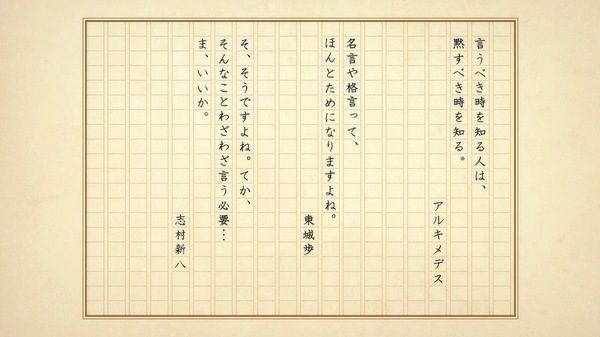 言うべき時を知る人は、
黙すべき時を知る。
アルキメデス
名言や格言って、
ほんとためになりますよね。
東城歩
そ、そうですよね。てか、
そんなことわざわざ言う必要…
ま、いいか。
志村新八